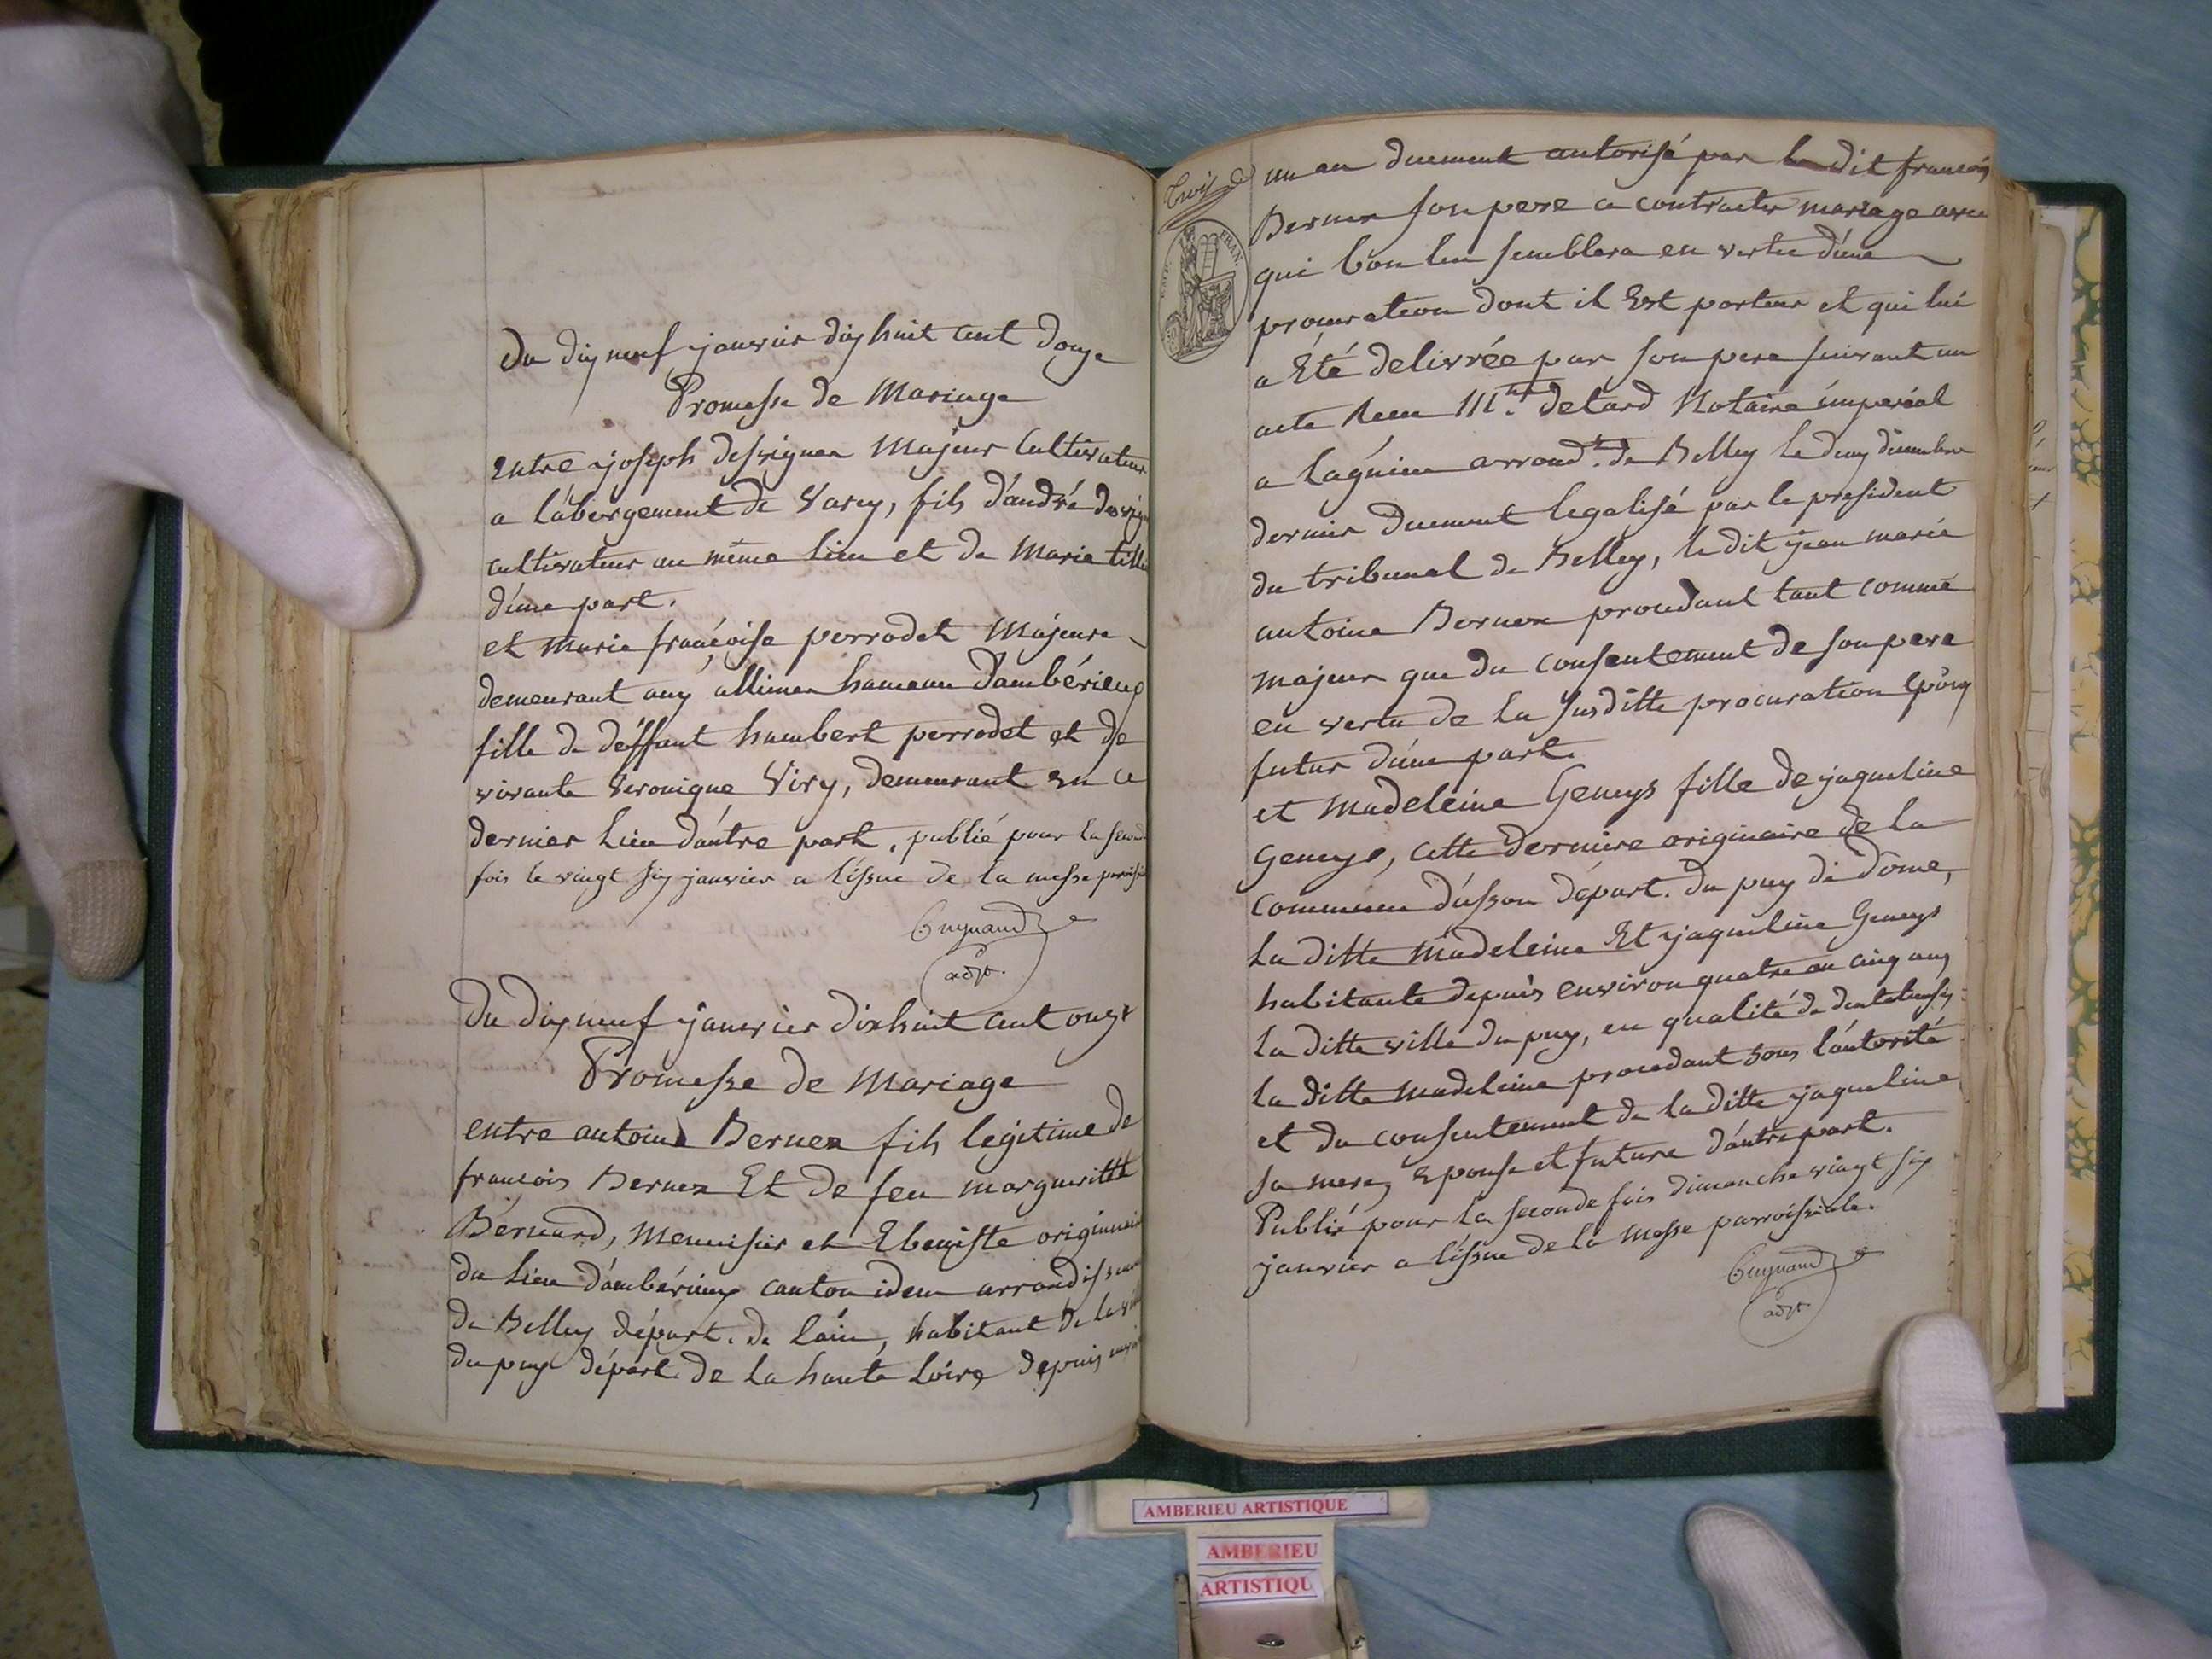 Du dix neuf janvier dix huit cent douze
Promesse de Mariage
Entre joseph desvignes Majeur Cultivateur
a l'abergement de Varey, fils d'andré
cultivateur au même lieu et de Marie
d'une part.
et Marie françoise perrodet Majeure
demeurant aux allimes hameau d'ambérieux
fille de déffunt humbert perrodet et de
vivante Veronique Viry, demeurant en ce
dernier lieu d'autre part, publié pour la
fois le vingt six janvier a l'issue de la messe
Guynand
adjt.
Du dix neuf janvier dixhuit cent onze
Promesse de Mariage
entre antoine Bernex fils legitime de
francois Bernex Et de feu margueritte
Bérnard, Menuisier et Ebeniste
du lieu d'ambérieux canton idem
de Belley départ. de l'ain, habitant de la
du puy départ. de la haute Loire, depuis
Trois
FRAN.
un an duement autorisé par le dit francois
Bernex son pere a contracter mariage avec
qui bon lui semblera en vertu d'une
procuration dont il Est porteur et qui lui
a Été delivrée par son pere suivant un
acte Recu Mtre detard Notaire impérial
a lagnieu arrondt. de Belley le deux décembre
dernier duement legalisé par le president
du tribunal de Belley, le dit jean marie
antoine Bernex procedant tant comme
majeur que du consentement de son pere
en vertu de la susditte procuration Epoux
futur d'une part.
et Madeleine Geneys fille de jaqueline
Geneys, cette derniere originaire de la
commune d'usson départ. du puy de dôme,
la ditte Madeleine Et jaqueline Geneys
habitante depuis environ quatre ou cinq ans
la ditte ville du puy, en qualité de
la ditte Madeleine procedant sous l'autorité
et du consentement de la ditte jaqueline
sa mere, Epouse et future d'autre part.
Publié pour la seconde fois dimanche vingt six
janvier a l'issue de la messe parroissiale.
Guynand
adjt
AMBERIEU ARTISTIQUE
AMBERIEU
ARTISTIQU